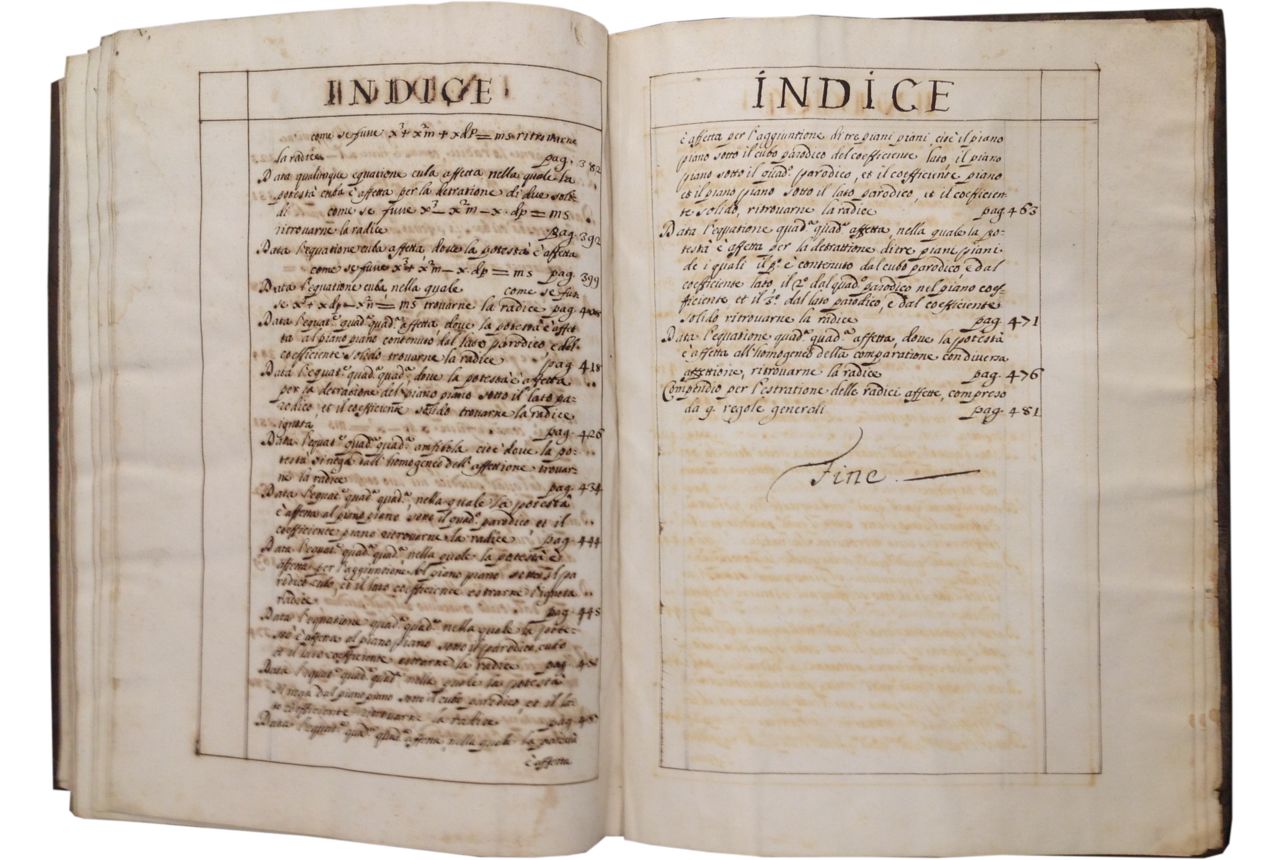 INDICE
come se fusse x³ + x²m + xdp = ms ritrovarne
la radice pag. 382
Data qualunque equatione cuba affetta nella quale la
potestà cuba è affetta per la detratione di due soli-
di come se fusse x³ - x²m - x dp = ms
ritrovarne la radice pag. 392
Data l'equatione cuba affetta dove la potestà è affetta
come se fusse x³ + x²m - x dp = ms pag. 399
Data l'equatione cuba nella quale come se fus
se = ms trovarne la radice pag.
Data l'equat.ᵉ quad.ᵒ quad.ᵃ affetta dove la potestà è affet
ta al piano piano contenuto dal lato parodico e dal
coefficiente solido trovarne la radice pag. 418
Data l'equat.ᵉ quad.ᵒ quad.ᵃ, dove la potestà è affetta
per la detratione del piano piano sotto il lato pa-
rodico, et il coefficiente solido trovarne la radice
ignota pag. 426
Data l'equat.ᵉ quad.ᵒ quad.ᵃ cioè dove la po-
testà si nega dall'homogeneo dell'affettione trovar-
ne la radice pag. 434
Data l'equat.ᵉ quad.ᵒ quad.ᵃ, nella quale la potestà
è affetta al piano piano sotto il quad.ᵒ parodico et il
coefficiente piano ritrovarne la radice pag. 444
Data l'equat.ᵉ quad.ᵒ quad.ᵃ nella quale la potestà è
affetta per l'aggiuntione del piano piano sotto il pa
rodico cubo, et il lato coefficiente estrarne l'ignota
radice pag. 448
Data l'equatione quad.ᵒ quad.ᵃ nella quale la pote-
stà è affetta al piano piano sotto il parodico cubo
et il lato coefficiente ritrovarne la radice pag.
Data l'equat.ᵉ quad.ᵒ quad.ᵃ nella quale la potestà
si nega dal piano piano sotto il cubo parodico, et il la-
to coefficiente ritrovarne la radice pag.
Data l'equat.ᵉ quad.ᵒ quad.ᵃ affetta, nella quale la potestà
è affetta
INDICE
è affetta per l'aggiuntione di tre piani piani cioè il piano
piano sotto il cubo parodico del coefficiente lato il piano
piano sotto il quad.ᵒ parodico, et il coefficiente piano
et il piano piano sotto il lato parodico, et il coefficien-
te solido, ritrovarne la radice pag. 463
Data l'equatione quad.ᵒ quad.ᵃ affetta, nella quale la po-
testà è affetta per la detrattione di tre piani piani
de i quali il p.ᵒ è contenuto dal cubo parodico, e dal
coefficiente lato, il 2.ᵒ dal quad.ᵒ parodico nel piano coef-
ficiente et il 3.ᵒ dal lato parodico, e dal coefficiente
solido ritrovarne la radice pag. 471
Data l'equatione quad.ᵒ quad.ᵃ affetta, dove la potestà
è affetta all'homogeneo della comparatione con diversa
affettione, ritrovarne la radice pag. 476
Compendio per l'estratione delle radici affette, compreso
da 9. regole generali pag. 481
Fine.